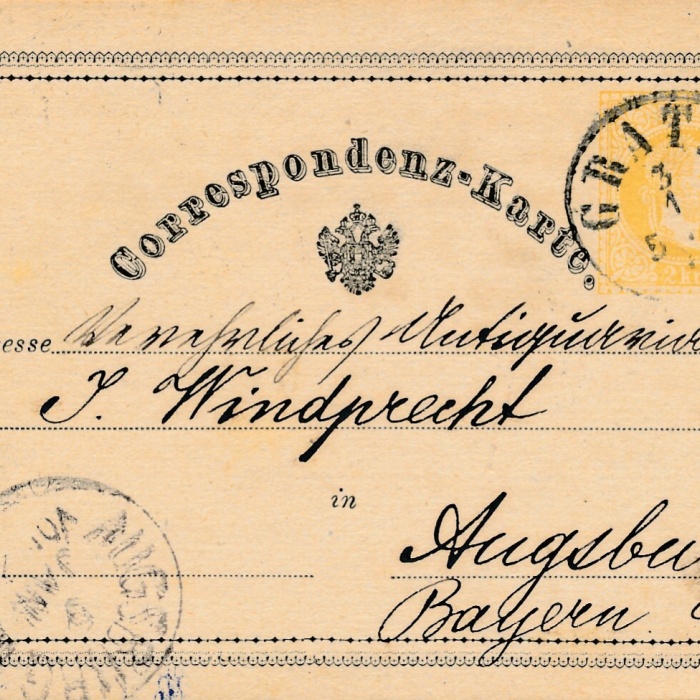 Correspondenz-Karte.
GRAT
3
7
5
2 K
esse Verehrliches Antiquaria
J. Windprecht
in
Augsbu
Bayern.
AUGSBURG